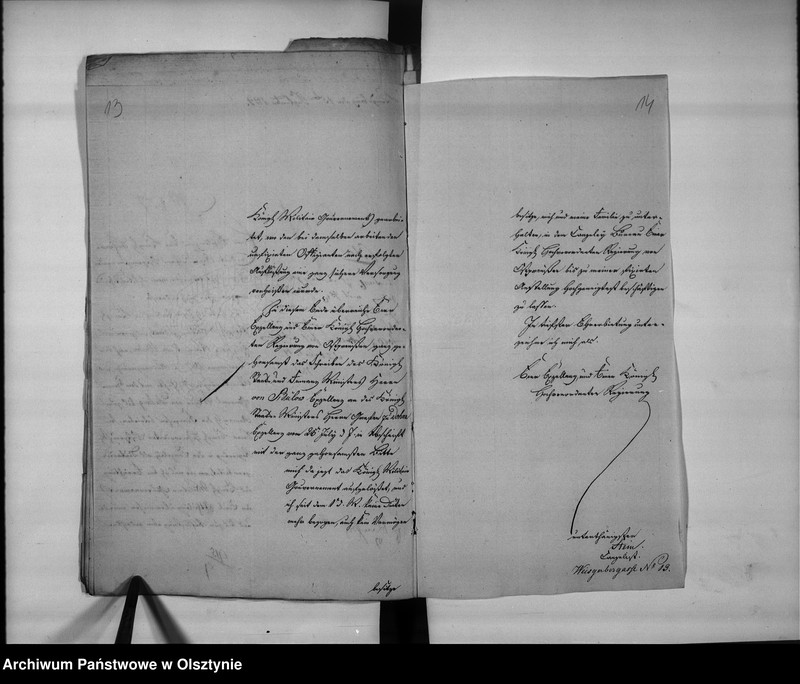 13
Königl. Militair Gouvernements) gearbei-
tet, wo den bei demselben arbeitenden
Offizianten nach erfolgter
Auflösung eine ganz sichere Versorgung
verheißen wurde.
Zu diesem Ende überreiche Euer
Excellenz und Einer Königl. Hochverordne-
ten Regierung von Ostpreußen ganz ge-
horsamst das Schreiben des Königl.
Staats und Finanz Ministers Herrn
von Bülow Excellenz an des Königl.
Staats Ministers Herrn Grafen zu Dohna
Excellenz vom 26 July d. J. in Abschrift
mit der ganz gehorsamsten Bitte
mich da jetzt das Königl. Militair
Gouvernement aufgelöset, und
ich seit dem 1 d. M. keine Diäten
mehr bezogen, auch kein Vermögen
besitze
14
besitze, mich und meine Familie zu unter-
halten, in dem Canzeley Bureau Einer
Königl. Hochverordneten Regierung von
Ostpreußen bis zu meiner fixirten
Anstellung hochgeneigtest beschäftigen
zu lassen.
In tiefster Ehrerbietung unter-
zeichne ich mich als.
Euer Excellenz und Einer Königl.
Hochverordneten Regierung
unterthänigster
Canzelist.
No 13.
Archiwum Państwowe w Olsztynie